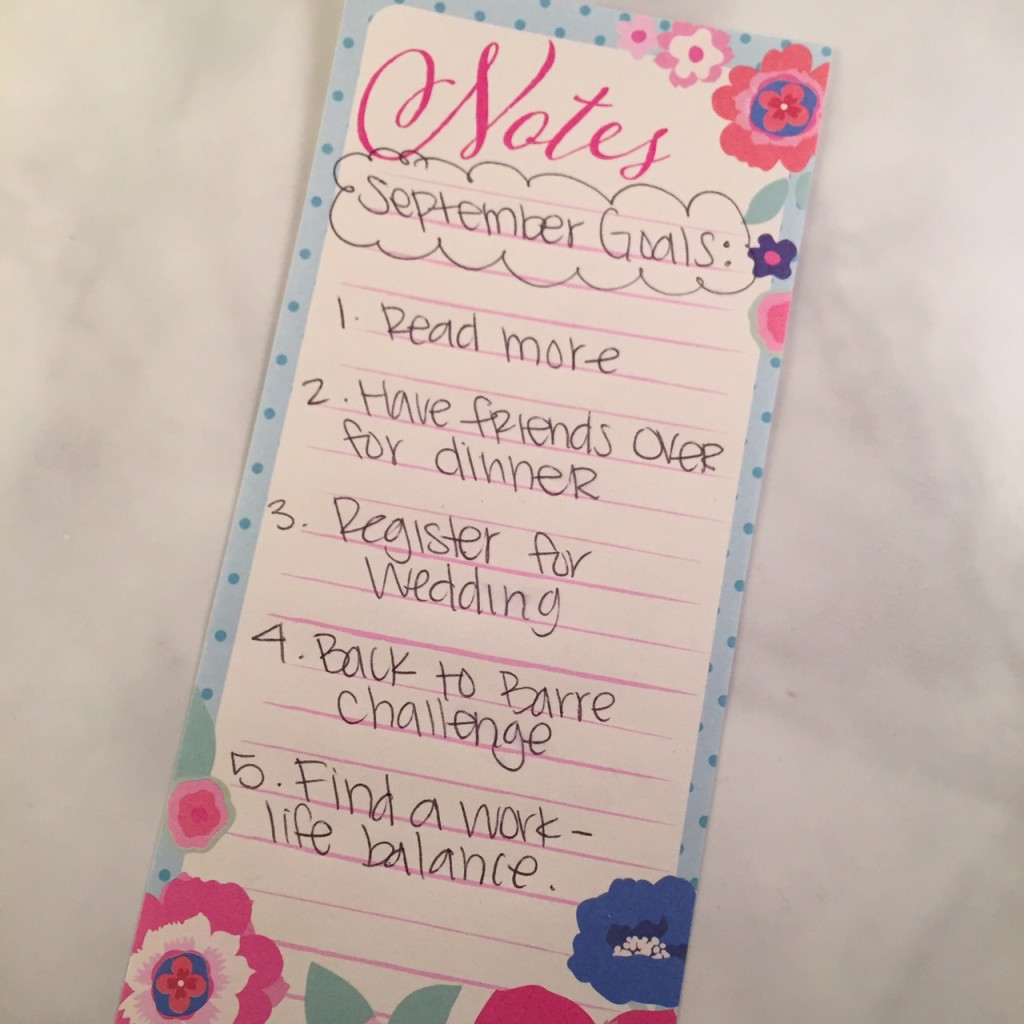 Notes
September Goals:
1. Read more
2. Have friends over
for dinner
3. Register for
Wedding
4. Back to Barre
Challenge
5. Find a work-
life balance.